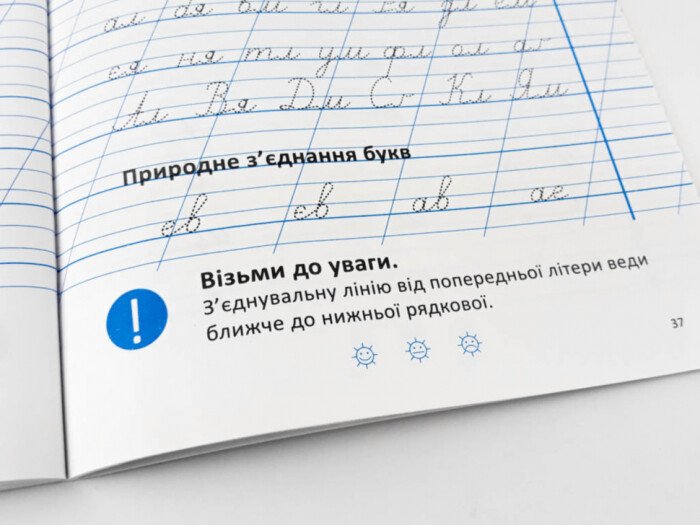 єя ня тл ум фл ол
Ал Вя Дм Сг Кл Ям
Природне з’єднання букв
ев єв ав ае
Візьми до уваги.
З’єднувальну лінію від попередньої літери веди
ближче до нижньої рядкової.
37